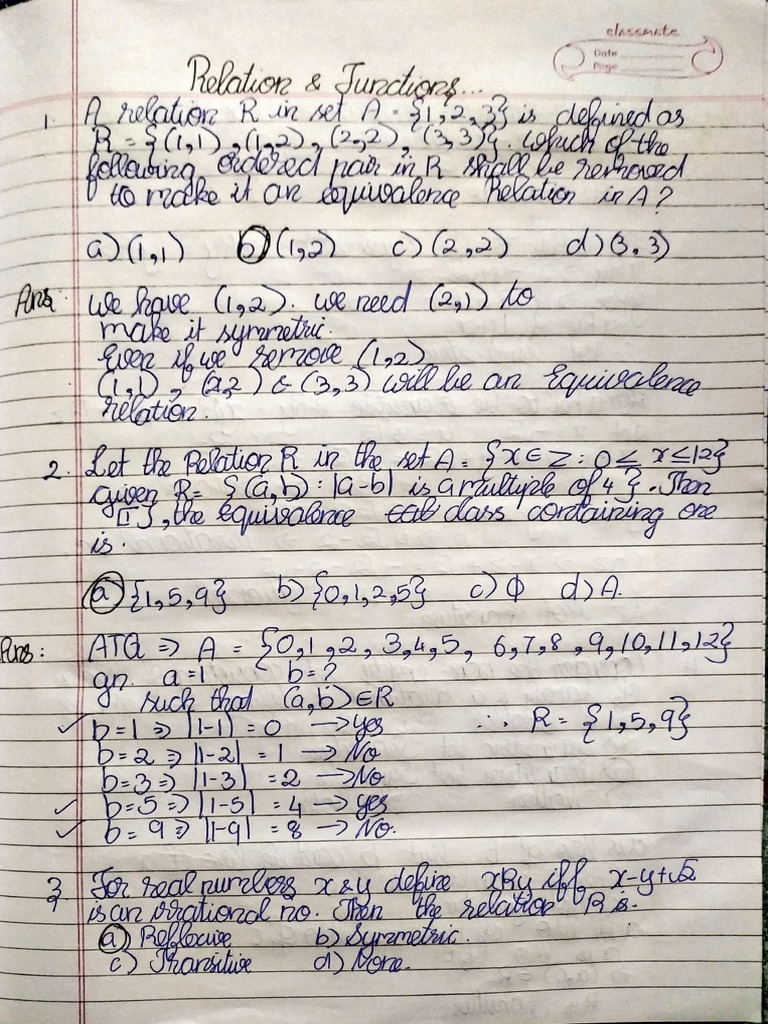 classmate
Date
Page
Relation & Functions...
1. A relation R in set A = {1, 2, 3} is defined as
R = {(1,1), (1,2), (2,2), (3,3)}. Which of the
following ordered pair in R shall be removed
to make it an equivalence Relation in A?
a) (1,1) b) (1,2) c) (2,2) d) (3,3)
Ans: we have (1,2). we need (2,1) to
make it symmetric.
Even if we remove (1,2)
(1,1), (2,2) & (3,3) will be an Equivalence
relation.
2. Let the Relation R in the set A = {x ∈ Z : 0 ≤ x ≤ 12}
given R = {(a,b) : |a-b| is a multiple of 4}. Then
[1], the equivalence class containing one
is.
a) {1,5,9} b) {0,1,2,5} c) Φ d) A.
Ans: ATQ ⇒ A = {0,1,2,3,4,5,6,7,8,9,10,11,12}
gn. a=1 b=?
such that (a,b)∈R
✓ b=1 ⇒ |1-1| = 0 → yes ∴ R = {1,5,9}
b=2 ⇒ |1-2| = 1 → No
b=3 ⇒ |1-3| = 2 → No
✓ b=5 ⇒ |1-5| = 4 → yes
✓ b=9 ⇒ |1-9| = 8 → No.
3. For real numbers x & y define xRy iff x-y+√2
is an irrational no. Then the relation R is.
a) Reflexive b) Symmetric.
c) Transitive d) None.